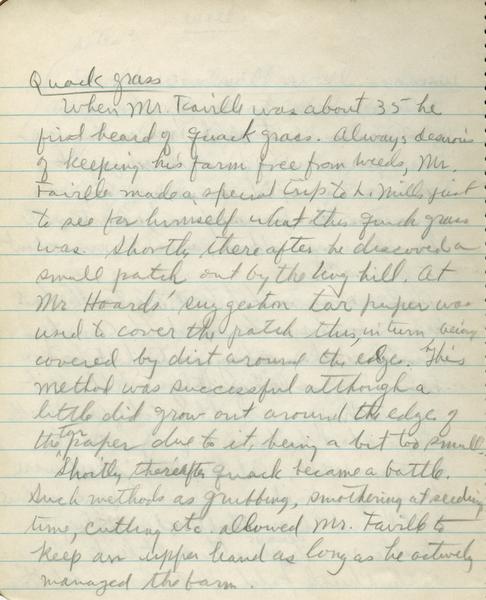 Quack grass
When Mr. Faville was about 35 he
first heard of quack grass. Always desirous
of keeping his farm free from weeds, Mr.
Faville made a special trip to L. Mills just
to see for himself what this quack grass
was. Shortly thereafter he discovered a
small patch out by the big hill. At
Mr Hoards' suggestion tar paper was
used to cover the patch this, in turn being
covered by dirt around the edge. This
method was successful although a
little did grow out around the edge of
the tar paper due to it, being a bit too small.
Shortly thereafter quack became a battle.
Such methods as grubbing, smothering at seeding
time, cutting etc. allowed Mr. Faville to
keep an upper hand as long as he actively
managed the farm.